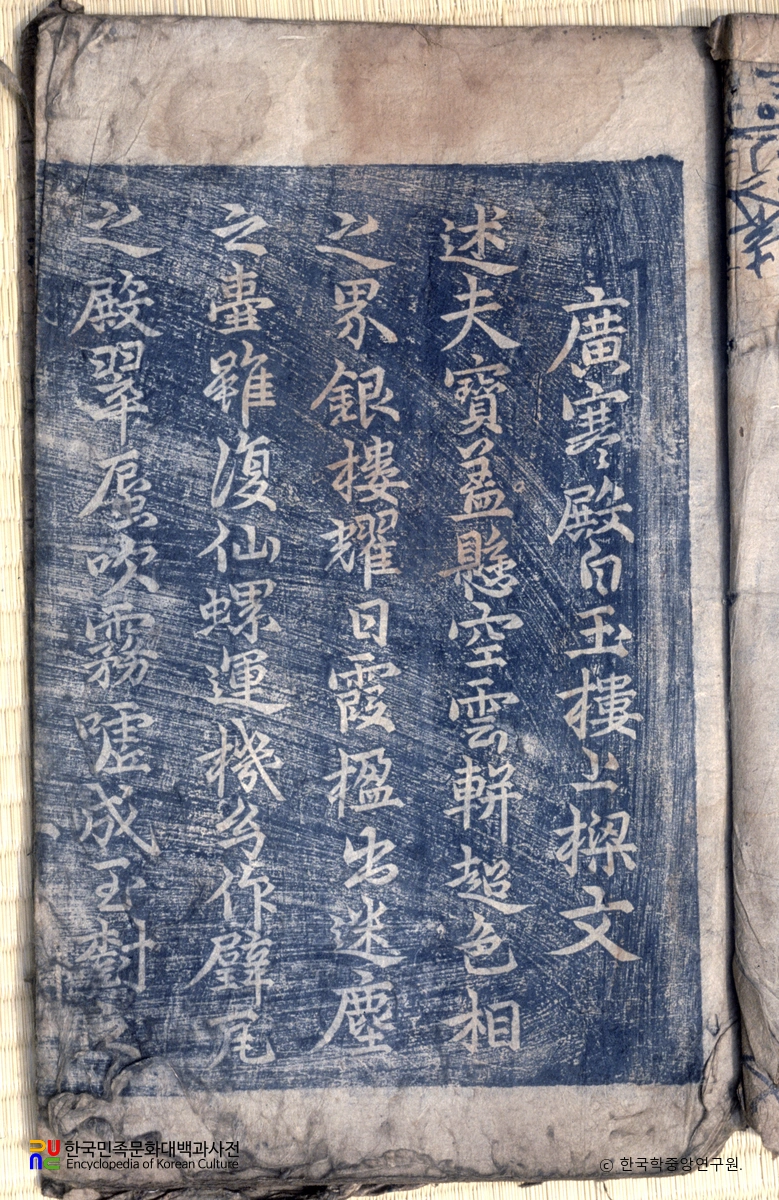 廣寒殿白玉樓上樑文
述夫寶盖懸空雲輧超色相
之界銀樓耀日霞楹出迷塵
之臺雖復仙螺運機幻作璧瓦
之殿翠蜃吹霧噓成玉樹之
한국민족문화대백과사전
Encyclopedia of Korean Culture
© 한국학중앙연구원.